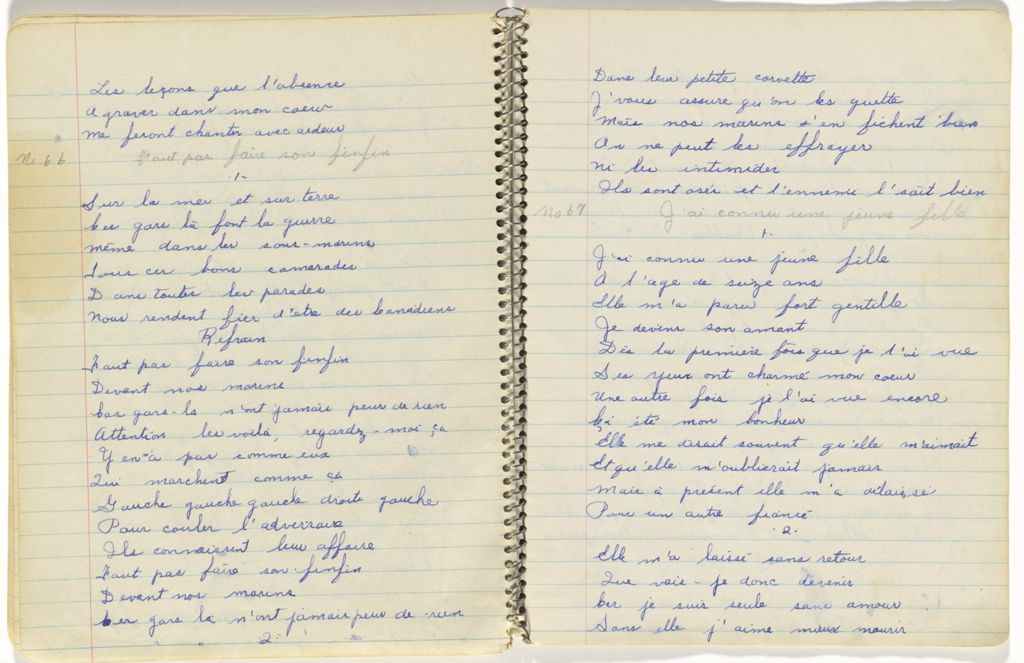 Les leçons que l'absence
A graver dans mon coeur
Me feront chanter avec ardeur
No 66 Faut pas faire son finfin
1-
Sur la mer et sur terre
Ces gars là font la guerre
Même dans les sous-marins
Tous ces bons camarades
Dans toutes leur parades
Nous rendent fier d'etre des Canadiens
Refrain
Faut pas faire son finfin
Devant nos marins
Ces gars-la n'ont jamais peur de rien
Attention les voilà, regardez-moi ça
Y en'a pas comme eux
Qui marchent comme ça
Gauche gauche gauche droite gauche
Pour couler l'adversaire
Ils connaissent leur affaire
Faut pas faire son finfin
Devant nos marins
Ces gars la n'ont jamais peur de rien
2.
Dans leur petite corvette
J'vous assure qu'on les guette
Mais nos marins s'en fichent bien
On ne peut les effrayer
Ni les intimider
Ils sont osés et l'ennemi l'sait bien
No 67 J'ai connu une jeune fille
1.
J'ai connu une jeune fille
A l'age de seize ans
Elle m'a paru fort gentille
Je devins son amant
Dès la première fois que je l'ai vue
Ses yeux ont charmé mon coeur
Une autre fois je l'ai vue encore
Ç'a été mon bonheur
Elle me disait souvent qu'elle m'aimait
Et qu'elle m'oublierait jamais
Mais à présent elle m'a délaissé
Pour un autre fiancé
2.
Elle m'a laissé sans retour
Que vais-je donc devenir
Car je suis seule sans amour
Sans elle j'aime mieux mourir